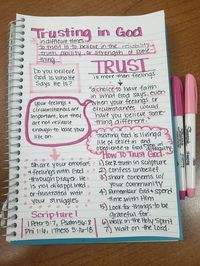 Trusting in God
in difficult times
to trust is to believe in the reliability,
truth, ability, or strength of some-
thing.
Do you believe
God is who He
says He is?
TRUST
is more than feelings
a choice to have faith
in what God says, even
when your feelings or
circumstances would
have you believe some
thing different.
Your feelings &
circumstances are
important, but they
are not reliable
to base your
life on.
trusting God is living a
life of belief in and
obedience to God
How To Trust God:
Share your emotions
& feelings with God
through prayer. He
is not disappointed
or frustrated with
your struggles
1) Seek truth in Scripture
2) confess unbelief
3) share concerns w/
your community
4) Remember God & spend
time with Him
5) Look for things to be
grateful for.
6) Walk in the Holy Spirit
7) Wait on the Lord
Scripture!
1 Peter 5:7, Psalm 56:8
Phil 1:6, 1 Thess 5:16-18